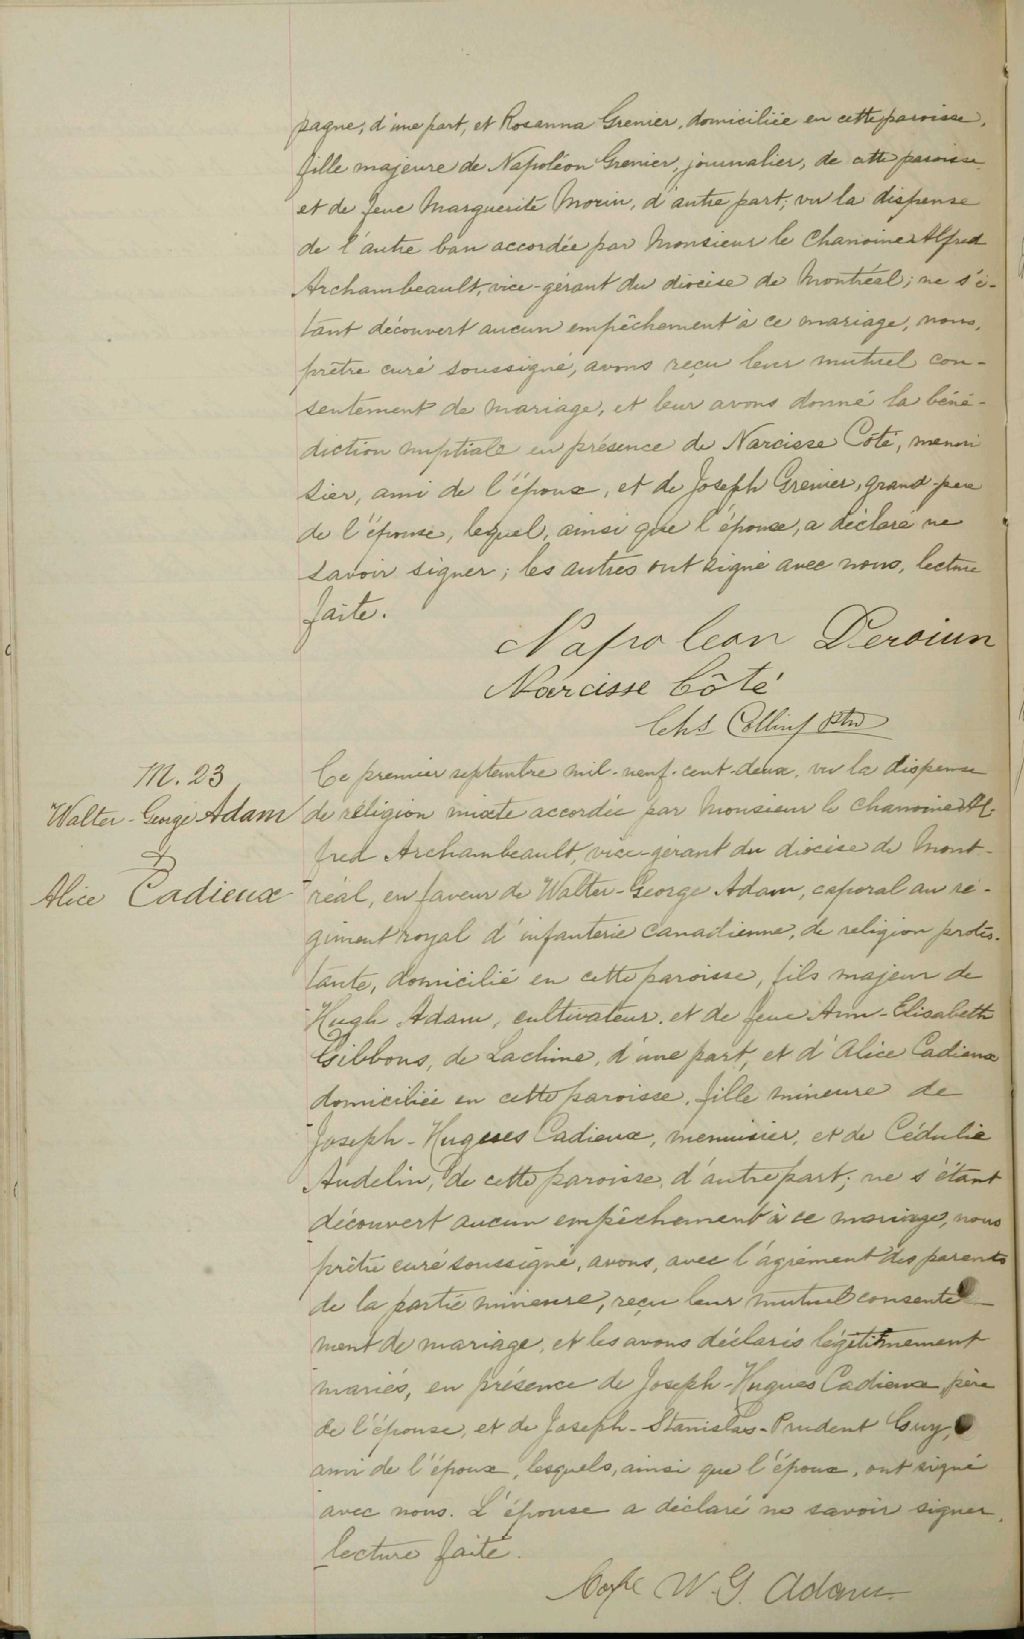 pagne, d'une part, et Rosanna Grenier, domiciliée en cette paroisse,
fille majeure de Napoléon Grenier, journalier, de cette paroisse
et de feue Marguerite Morin, d'autre part; vu la dispense
de l'autre ban accordée par Monsieur le Chanoine Alfred
Archambeault, vice-gérant du diocèse de Montréal; ne s'é-
tant découvert aucun empêchement à ce mariage, nous,
prêtre curé soussigné, avons reçu leur mutuel con-
sentement de mariage, et leur avons donné la béné-
diction nuptiale en présence de Narcisse Côté, menui
sier, ami de l'époux, et de Joseph Grenier, grand-père
de l'épouse, lequel, ainsi que l'épouse, a déclaré ne
savoir signer; les autres ont signé avec nous, lecture
faite.
Napoleon
Narcisse Côté
Chs Ptre
M. 23
Walter-George Adam
&
Alice Cadieux
Ce premier septembre mil-neuf-cent-deux, vu la dispense
de religion mixte accordée par Monsieur le chanoine Al-
fred Archambeault, vice-gérant du diocèse de Mont-
réal, en faveur de Walter-George Adam, caporal au ré-
giment royal d'infanterie canadienne, de religion protes-
tante, domicilié en cette paroisse, fils majeur de
Hugh Adam, cultivateur, et de feue Ann-Elisabeth
Gibbons, de Lachine, d'une part, et d'Alice Cadieux
domiciliée en cette paroisse, fille mineure de
Joseph-Hugues Cadieux, menuisier, et de Cédulie
Audelin, de cette paroisse, d'autre part; ne s'étant
découvert aucun empêchement à ce mariage, nous
prêtre curé soussigné, avons, avec l'agrément des parents
de la partie mineure, reçu leur mutuel consente-
ment de mariage, et les avons déclarés légitimement
mariés, en présence de Joseph-Hugues Cadieux, père
de l'épouse, et de Joseph-Stanislas-Prudent Guy,
ami de l'époux, lesquels, ainsi que l'époux, ont signé
avec nous. L'épouse a déclaré ne savoir signer,
lecture faite.
W. G. Adam